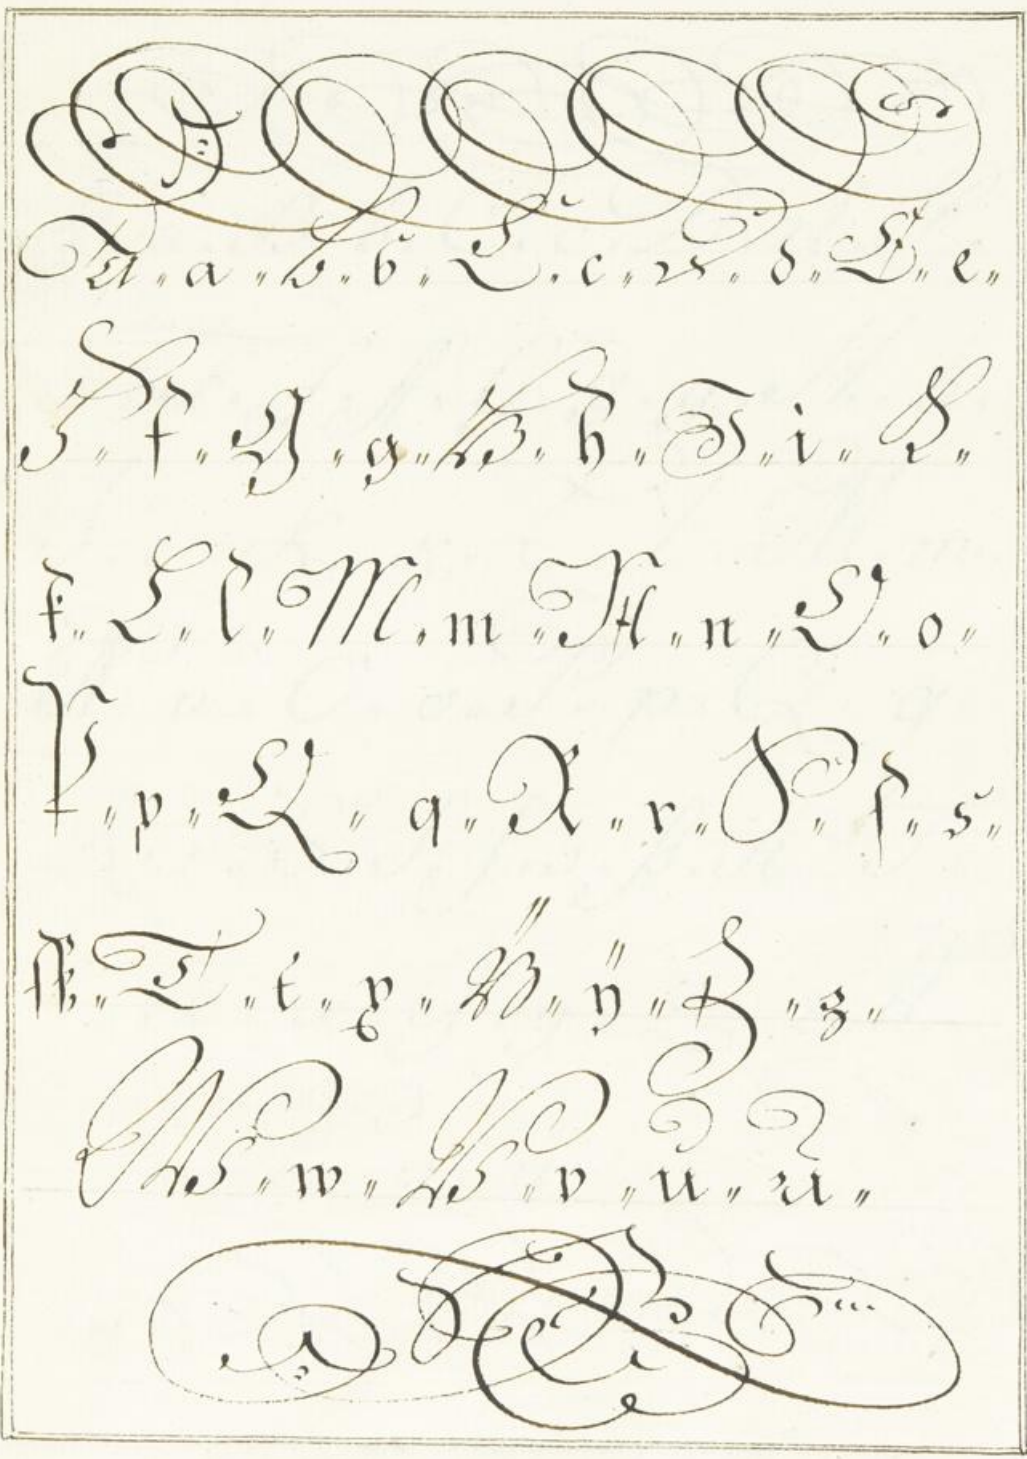 A. a. B. b. C. c. D. d. E. e.
F. f. G. g. H. h. I. i. K.
k. L. l. M. m. N. n. O. o.
P. p. Q. q. R. r. S. ſ. s.
T. t. x. Ÿ. ÿ. Z. z.
W. w. V. v. u.